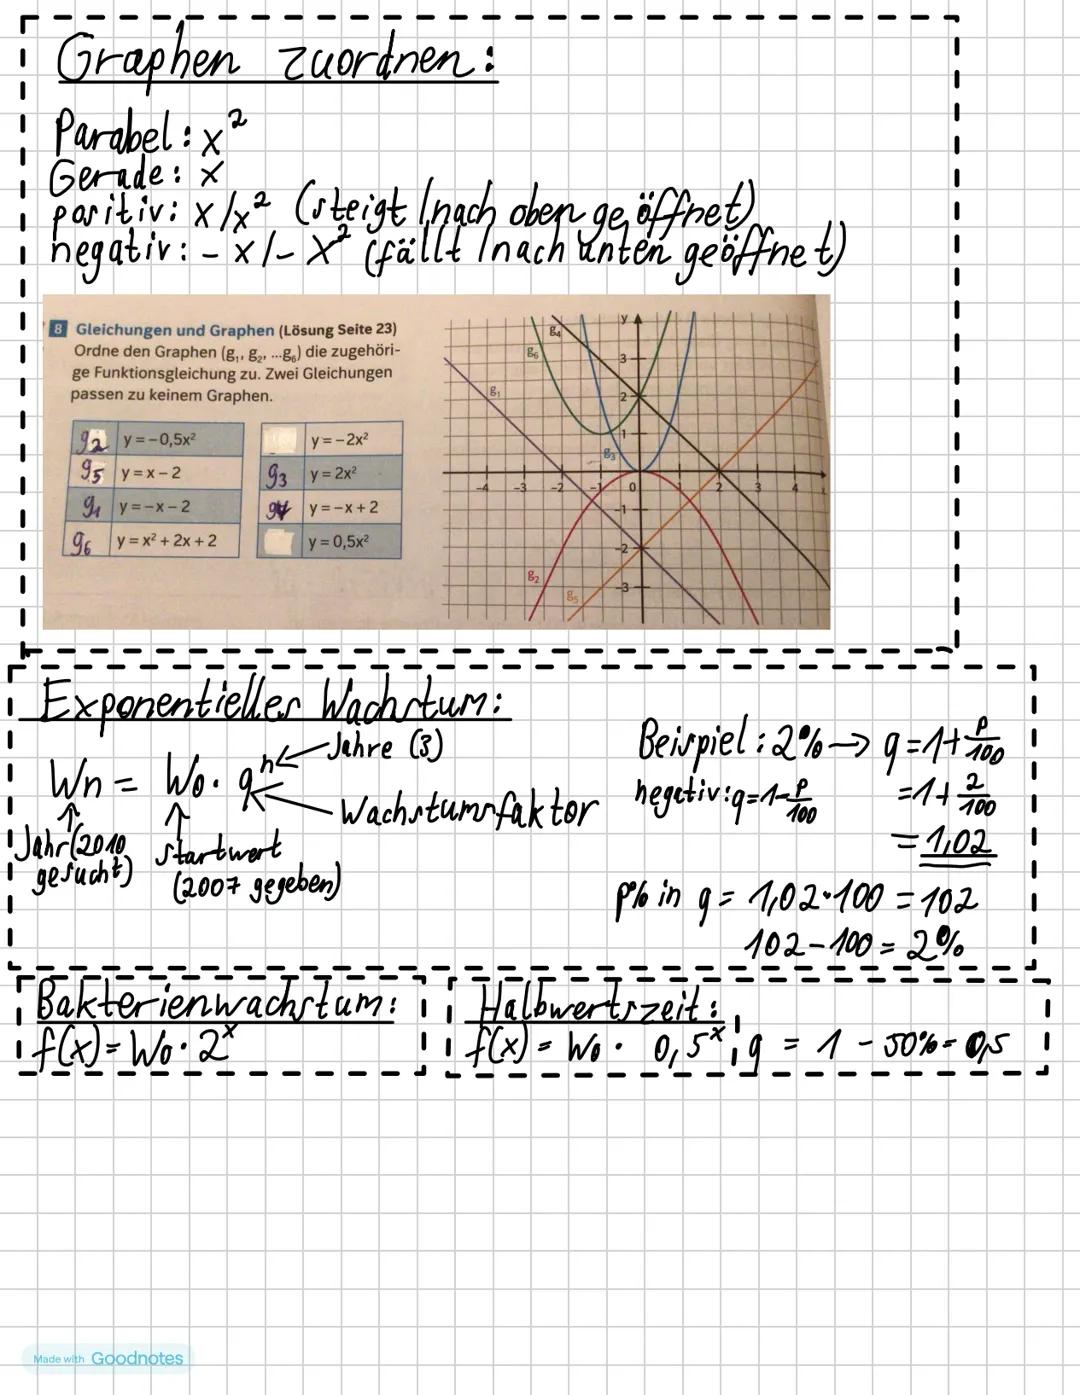 Graphen zuordnen:
Parabel: x²
Gerade: x
positiv: x/x² (steigt/nach oben geöffnet)
negativ: -x/-x² (fällt/nach unten geöffnet)
8 Gleichungen und Graphen (Lösung Seite 23)
Ordne den Graphen (g₁, g₂, ...g₆) die zugehöri-
ge Funktionsgleichung zu. Zwei Gleichungen
passen zu keinem Graphen.
g2 y = -0,5x²
g5 y = x - 2
g1 y = -x - 2
g6 y = x² + 2x + 2
y = -2x²
g3 y = 2x²
g4 y = -x + 2
y = 0,5x²
y
g₄
g₆
3
g₁
2
1
g₃
-4 -3 -2 -1 0 1 2 3 4
-1
-2
g₂
-3
g₅
Exponentieller Wachstum:
Jahre (3)
Wn = Wo · qⁿ
Wachstumsfaktor
Jahr (2010 gesucht)
Startwert
(2007 gegeben)
Beispiel: 2% → q = 1 + p/100
negativ: q = 1 - p/100
= 1 + 2/100
= 1,02
p% in q = 1,02 · 100 = 102
102 - 100 = 2%
Bakterienwachstum:
f(x) = Wo · 2ˣ
Halbwertszeit:
f(x) = Wo · 0,5ˣ ; q = 1 - 50% = 0,5
Made with Goodnotes